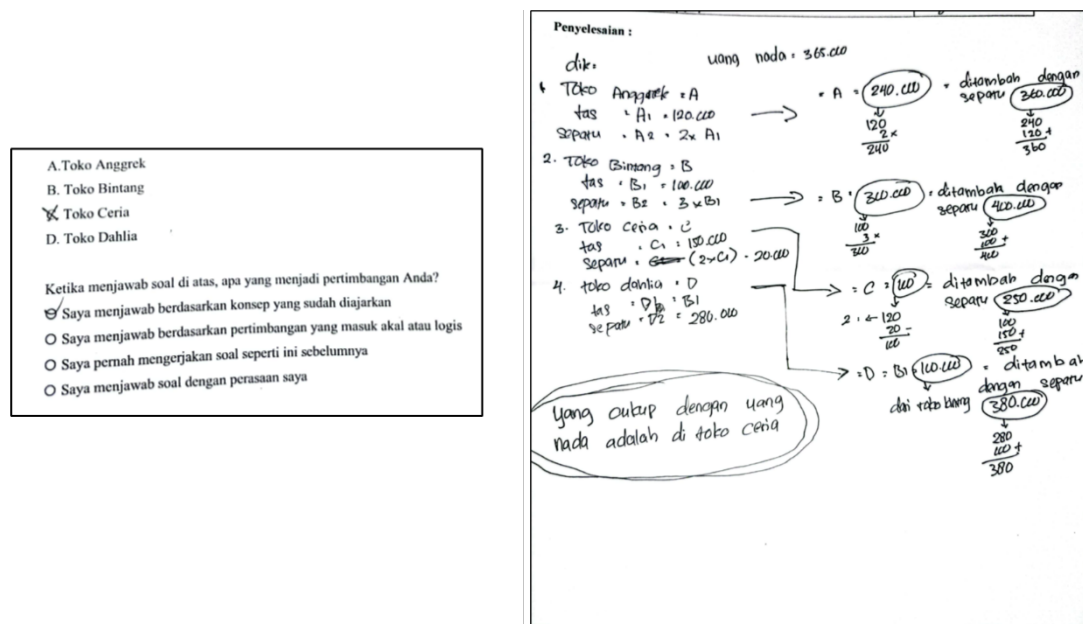 A.Toko Anggrek
B. Toko Bintang
Toko Ceria
D. Toko Dahlia
Ketika menjawab soal di atas, apa yang menjadi pertimbangan Anda?
Saya menjawab berdasarkan konsep yang sudah diajarkan
Saya menjawab berdasarkan pertimbangan yang masuk akal atau logis
Saya pernah mengerjakan soal seperti ini sebelumnya
Saya menjawab soal dengan perasaan saya
Penyelesaian :
dik:
uang nada = 365.000
1. Toko Anggrek = A
tas = A1 = 120.000
sepatu = A2 = 2x A1
= A = 240.000 = ditambah dengan
sepatu 360.000
120
2x
240
240
120 +
360
2. Toko Bintang = B
tas = B1 = 100.000
sepatu = B2 = 3 x B1
= B = 300.000 = ditambah dengan
sepatu 400.000
100
3 x
300
300
100 +
400
3. Toko Ceria = C
tas = C1 = 150.000
sepatu = (2xC1) - 20.000
= C = 100 = ditambah dengan
sepatu 250.000
2 = 120
20 -
100
100
150 +
250
4. toko dahlia = D
tas = = B1
sepatu = D2 = 280.000
= D = B1 = 100.000 = ditambah
dengan sepatu
dari toko 380.000
280
100 +
380
yang cukup dengan uang
nada adalah di toko ceria